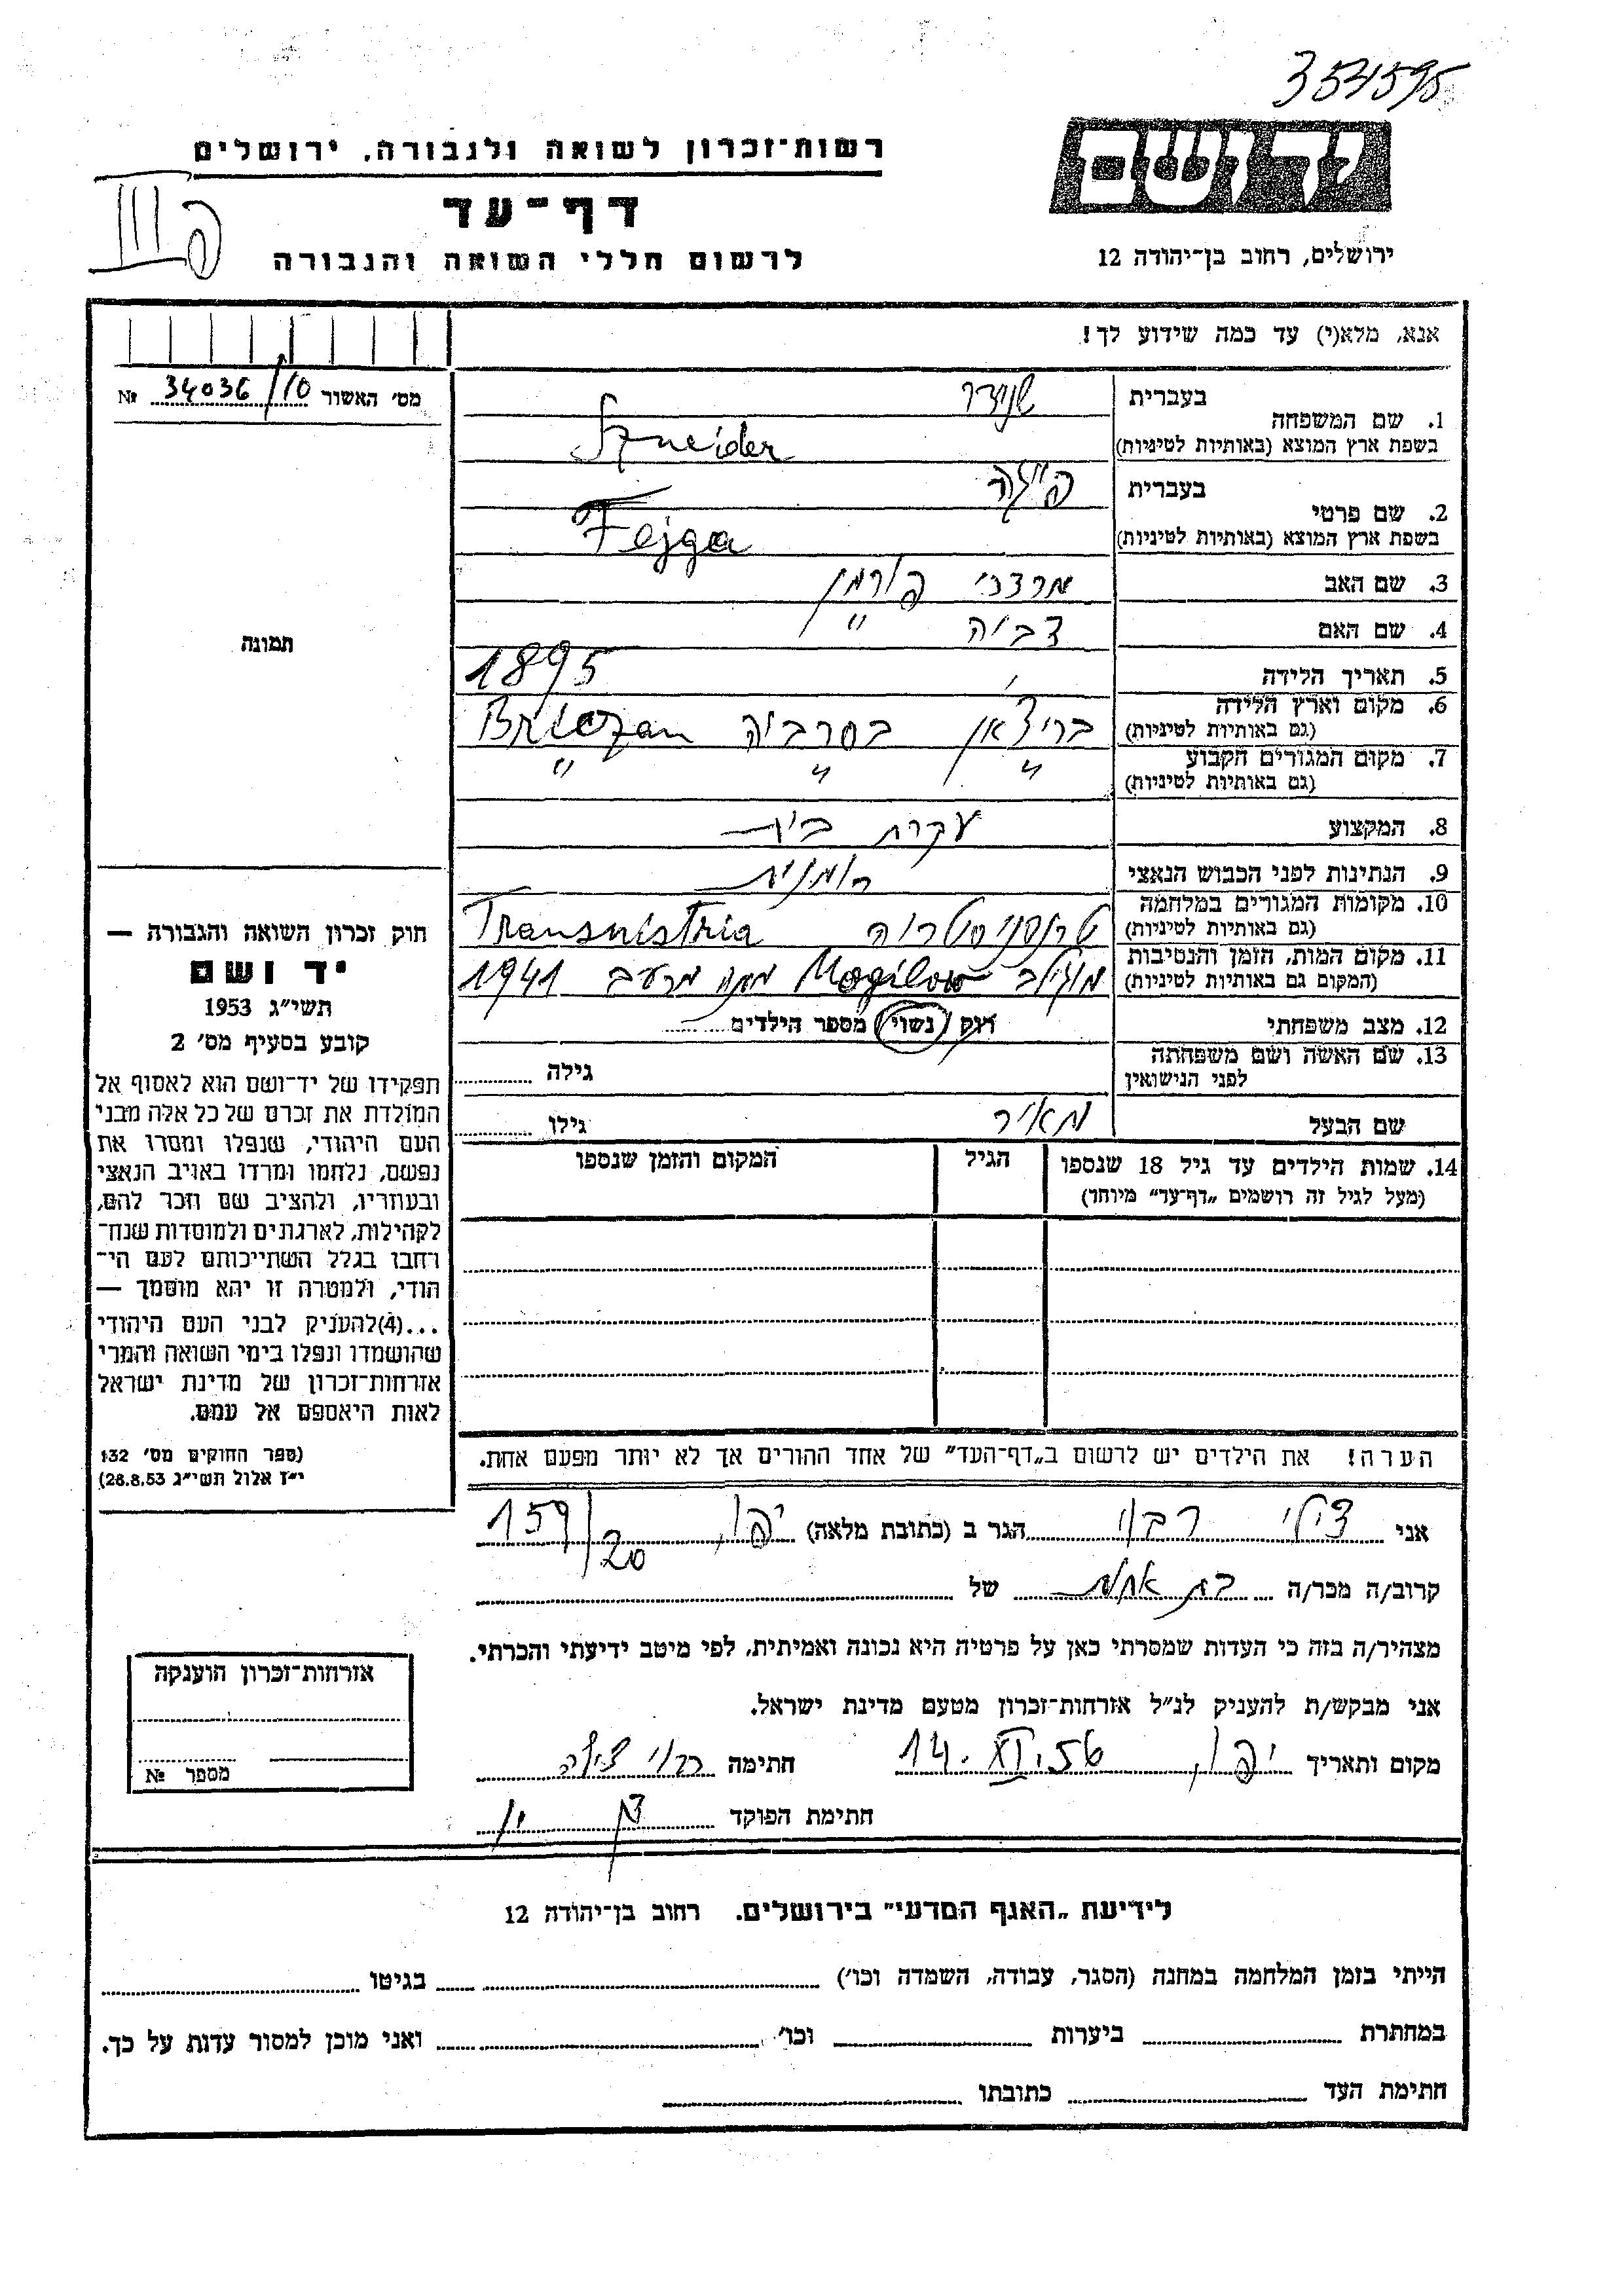 354595
רשות־זכרון לשואה ולגבורה, ירושלים
יד ושם
דף־עד
לרשום חללי השואה והגבורה
ירושלים, רחוב בן־יהודה 12
אנא, מלא(י) עד כמה שידוע לך!
מס׳ האשור 34036/10 №
תמונה
1. שם המשפחה בעברית שניידר
בשפת ארץ המוצא (באותיות לטיניות) Szneider
2. שם פרטי בעברית פייגה
בשפת ארץ המוצא (באותיות לטיניות) Fejga
3. שם האב מרדכי פורמן
4. שם האם צביה "
5. תאריך הלידה 1895
6. מקום וארץ הלידה (גם באותיות לטיניות) בריצ׳אן בסרביה Briczan
7. מקום המגורים הקבוע (גם באותיות לטיניות) " " "
8. המקצוע עקרת בית
9. הנתינות לפני הכבוש הנאצי רומנית
10. מקומות המגורים במלחמה (גם באותיות לטיניות) טרנסניסטריה Transnistria
11. מקום המות, הזמן והנסיבות (המקום גם באותיות לטיניות) מוגילב Mogilow מתה מרעב 1941
12. מצב משפחתי רוק / נשוי / מספר הילדים
13. שם האשה ושם משפחתה לפני הנישואין גילה
שם הבעל מאיר גילו
14. שמות הילדים עד גיל 18 שנספו
(מעל לגיל זה רושמים „דף־עד” מיוחד)
הגיל
המקום והזמן שנספו
חוק זכרון השואה והגבורה —
יד ושם
תשי״ג 1953
קובע בסעיף מס׳ 2
תפקידו של יד־ושם הוא לאסוף אל
המולדת את זכרם של כל אלה מבני
העם היהודי, שנפלו ומסרו את
נפשם, נלחמו ומרדו באויב הנאצי
ובעוזריו, ולהציב שם וזכר להם,
לקהילות, לארגונים ולמוסדות שנח־
רחבו בגלל השתייכותם לעם הי־
הודי, ולמטרה זו יהא מוסמך —
...(4)להעניק לבני העם היהודי
שהושמדו ונפלו בימי השואה והמרי
אזרחות־זכרון של מדינת ישראל
לאות היאספם אל עמם.
(ספר החוקים מס׳ 132
י״ז אלול תשי״ג 28.8.53)
הערה! את הילדים יש לרשום ב„דף־העד” של אחד ההורים אך לא יותר מפעם אחת.
אני צילי רבוי הגר ב (כתובת מלאה) יפו, 159/20
קרוב/ה מכר/ה בת אחות של
מצהיר/ה בזה כי העדות שמסרתי כאן על פרטיה היא נכונה ואמיתית, לפי מיטב ידיעתי והכרתי.
אני מבקש/ת להעניק לנ״ל אזרחות־זכרון מטעם מדינת ישראל.
מקום ותאריך יפו, 14. XI. 56 חתימה רבוי צילה
חתימת הפוקד
אזרחות־זכרון הוענקה
מספר №
לידיעת „האגף המדעי” בירושלים. רחוב בן־יהודה 12
הייתי בזמן המלחמה במחנה (הסגר, עבודה, השמדה וכו׳) בגיטו
במחתרת ביערות וכו׳ ואני מוכן למסור עדות על כך.
חתימת העד כתובתו